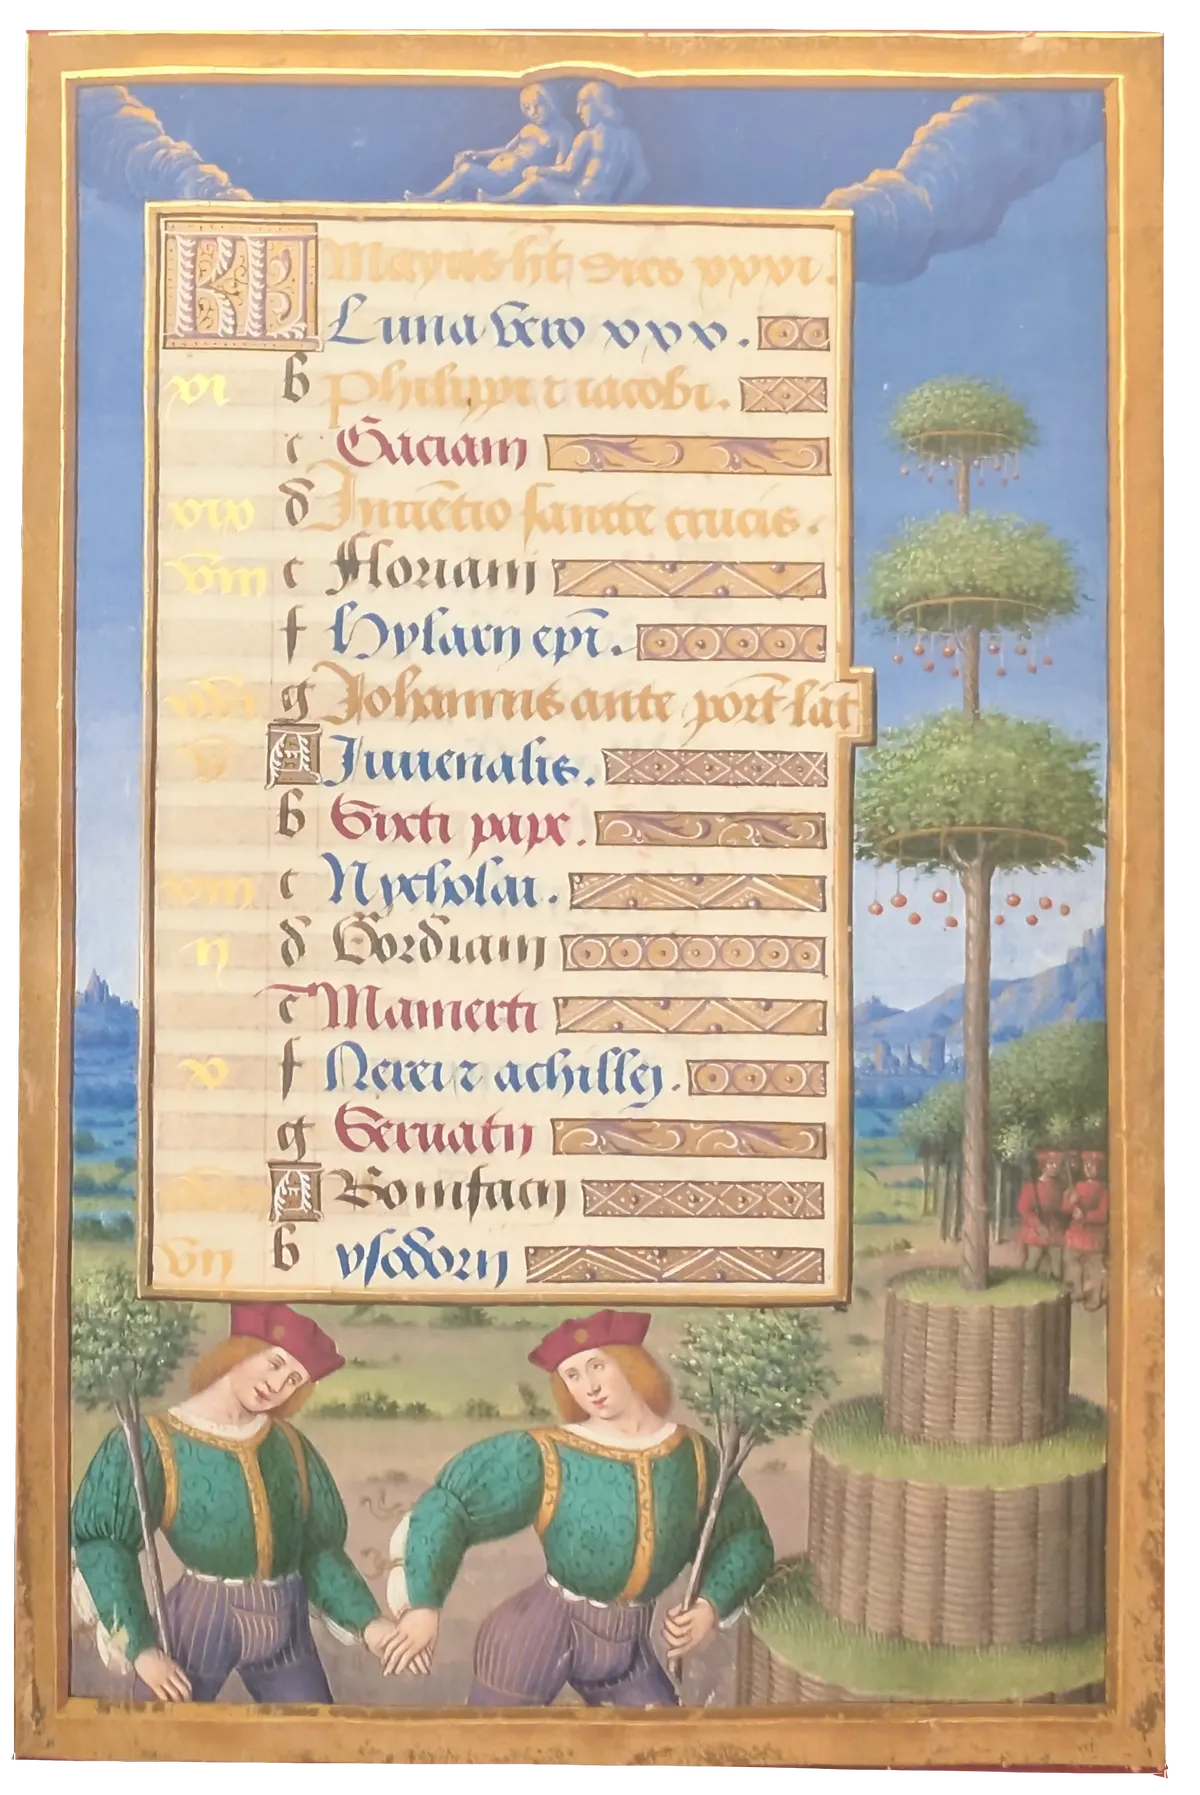 KL Mayus ht dies xxxi.
Luna vero xxx.
xi b Philippi ⁊ iacobi.
c Gaciani
xix d Inuētio sancte crucis.
viii e Floriani
f Hylarii epī.
xvi g Johannis ante port lat
v A Iuuenalis.
b Sixti pape.
xiii c Nycholai.
ii d Gordiani
e Mamerti
x f Nerei ⁊ achillej.
g Seruatii
A Bonifacii
vii b ysodorii